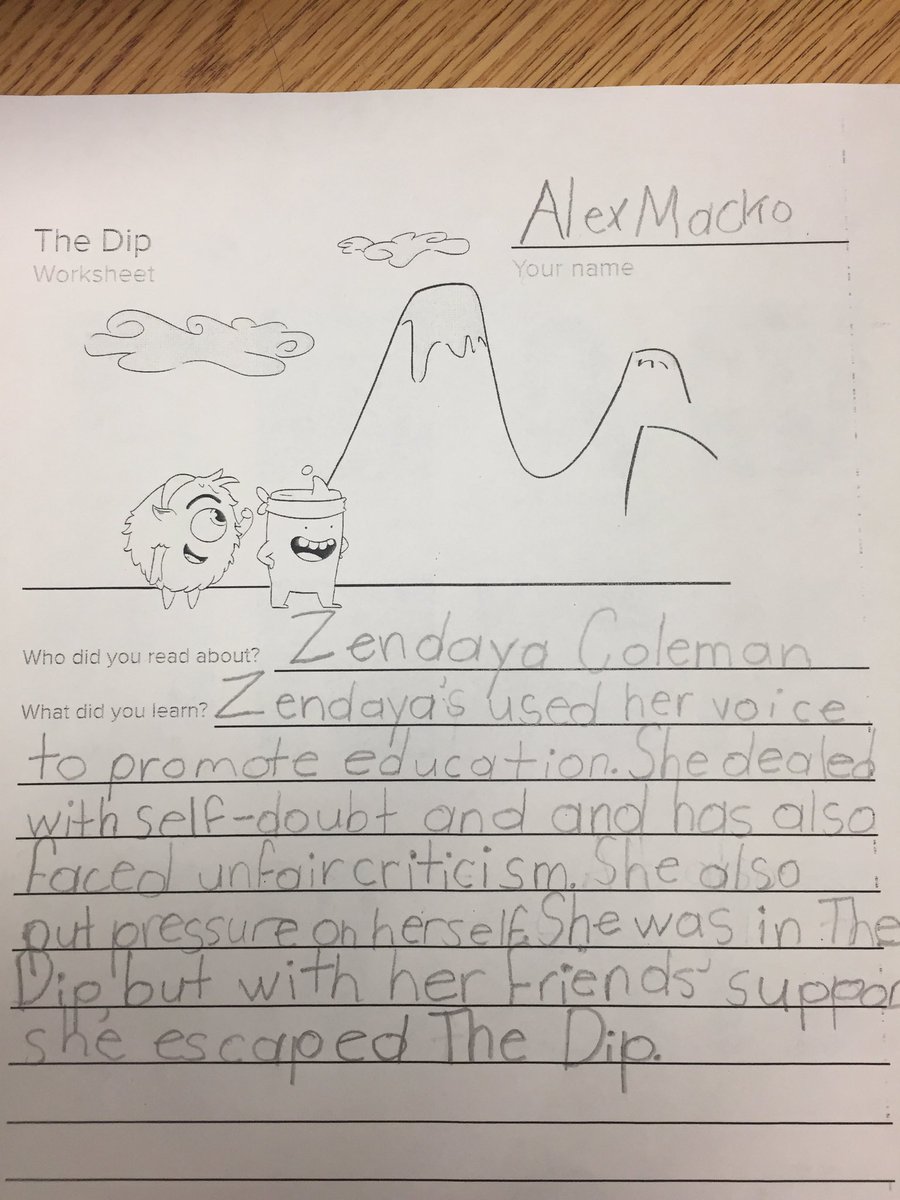 Alex Macko
The Dip
Worksheet
Your name
Who did you read about? Zendaya Coleman
What did you learn? Zendaya's used her voice
to promote education. She dealed
with self-doubt and and has also
faced unfair criticism. She also
put pressure on herself. She was in The
Dip but with her friends' suppor
she escaped The Dip.